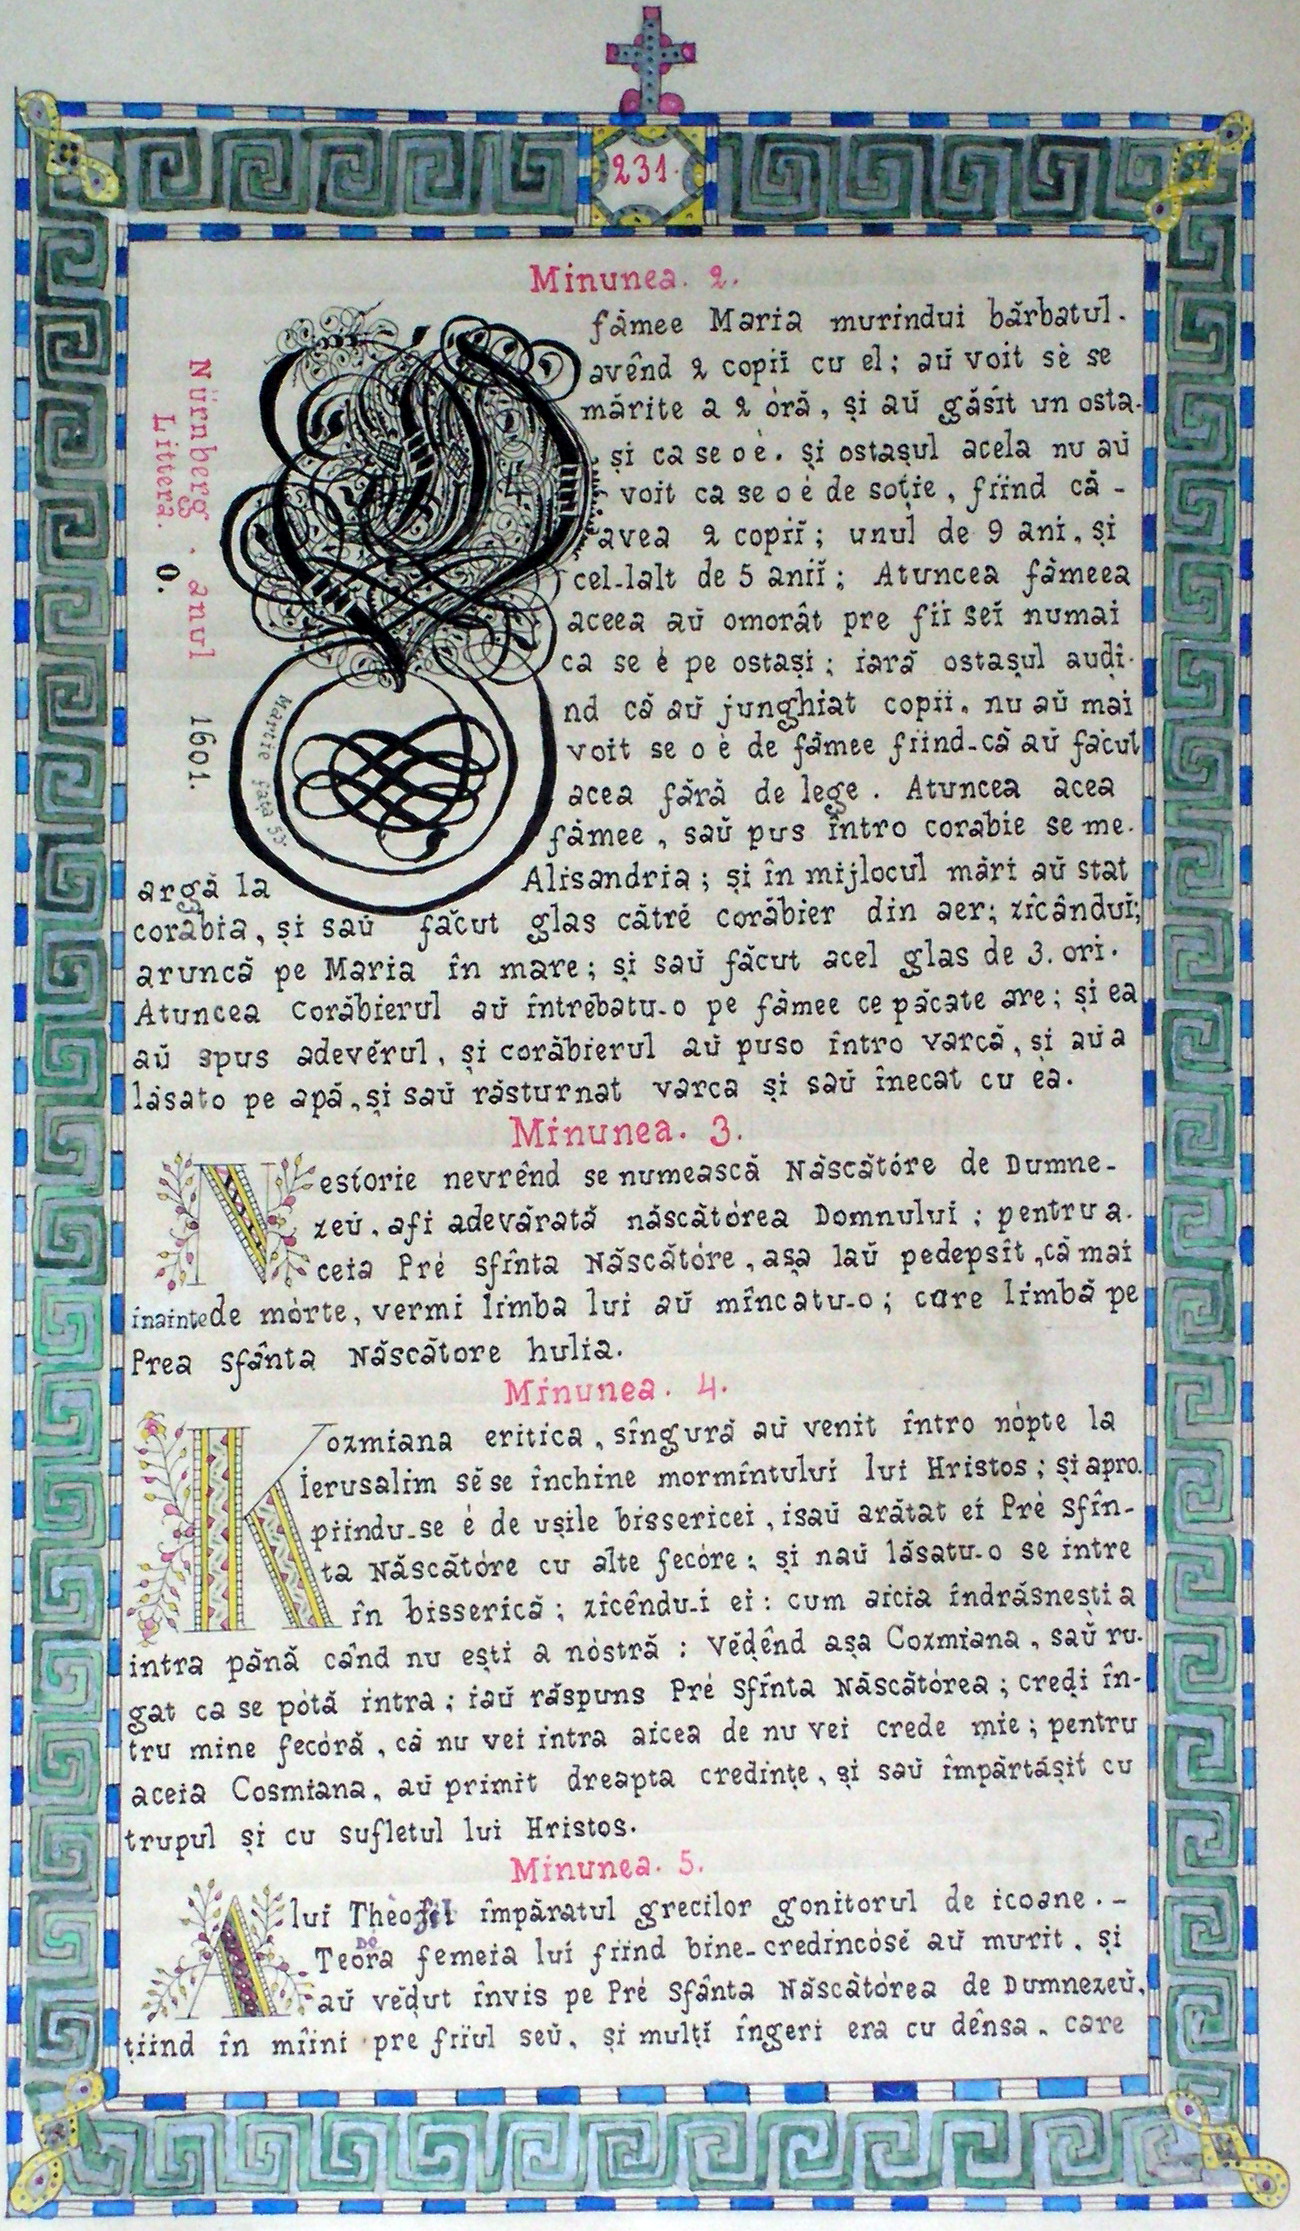 231.
Minunea. 2.
fámee Maria murindui bărbatul.
avênd 2 copiĭ cu el; aŭ voit sè se
mărite a 2 òră, și aŭ găsit un osta-
și ca se o è. și ostașul acela nu aŭ
voit ca se o è de soție, fiind că-
avea 2 copiĭ; unul de 9 ani, și
cel-lalt de 5 aniĭ; Atuncea fámeea
aceea aŭ omorât pre fiĭ seĭ numai
ca se è pe ostași; iară ostașul audi-
nd că aŭ junghiat copii, nu aŭ mai
voit se o è de fámee fiind-că aŭ făcut
acea fără de lege. Atuncea acea
fámee, saŭ pus întro corabie se me-
argă la Alisandria; și în mijlocul mări aŭ stat
corabia, și saŭ făcut glas cătré corăbier din aer; zicânduĭ;
aruncă pe Maria în mare; și saŭ făcut acel glas de 3. ori.
Atuncea Corăbierul aŭ întrebatu-o pe fámee ce păcate are; și ea
aŭ spus adevérul, și corăbierul aŭ puso întro varcă, și aŭ a
lăsato pe apă, și saŭ răsturnat varca și saŭ înecat cu ea.
Nürnberg. anul 1601.
Littera. O.
Minunea. 3.
Nestorie nevrênd se numească Născătóre de Dumne-
zeŭ, afi adevărată născătòrea Domnului; pentru a-
ceia Pré sfînta Născătòre, așa laŭ pedepsit, că mai
inainte de mòrte, vermi limba lui aŭ mîncatu-o; care limbă pe
Prea Sfânta Născătore hulia.
Minunea. 4.
Kozmiana eritica, sîngură aŭ venit întro nòpte la
Ierusalim sĕ se închine mormîntului lui Hristos; și apro-
piindu-se è de ușile bissericei, isaŭ arătat ei Pré Sfîn-
ta Născătòre cu alte fecòre; și naŭ lăsatu-o se intre
în bisserică; zicêndu-i ei: cum aicia îndrăsnești a
intra până când nu ești a nòstră: Vĕdênd așa Cozmiana, saŭ ru-
gat ca se pòtă intra; iaŭ răspuns Pré Sfînta Născătòrea; credi în-
tru mine fecòră, că nu vei intra aicea de nu vei crede mie; pentru
aceia Cosmiana, aŭ primit dreapta credințe, și saŭ împărtășit cu
trupul și cu sufletul lui Hristos.
Minunea. 5.
Alui Thèofil împăratul grecilor gonitorul de icoane.-
Teodora femeia lui fiind bine-credincòsé aŭ murit, și
aŭ vĕdut învis pe Pré Sfânta Născătòrea de Dumnezeŭ,
țiind în mîini pre fiĭul seŭ, și mulți îngeri era cu dênsa, care